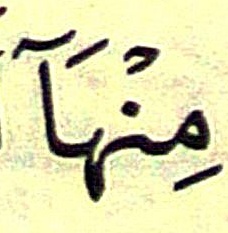 مِنْهَآ